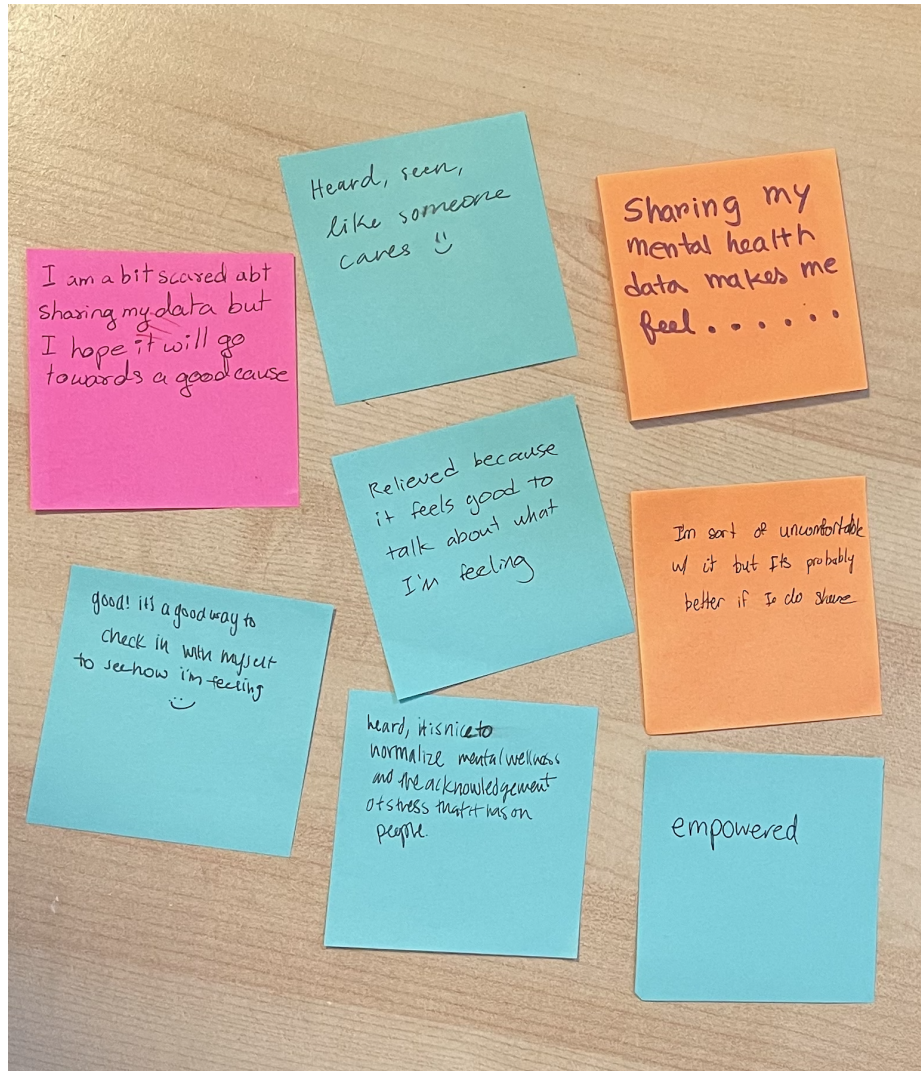 Sharing my
mental health
data makes me
feel......
Heard, seen,
like someone
cares
I am a bit scared abt
sharing my data but
I hope it will go
towards a good cause
Relieved because
it feels good to
talk about what
I'm feeling
I'm sort of uncomfortable
w/ it but Its probably
better if I do share
good! it's a good way to
check in with myself
to see how i'm feeling
heard, it is nice to
normalize mental wellness
and the acknowledgement
of stress that it has on
people.
empowered